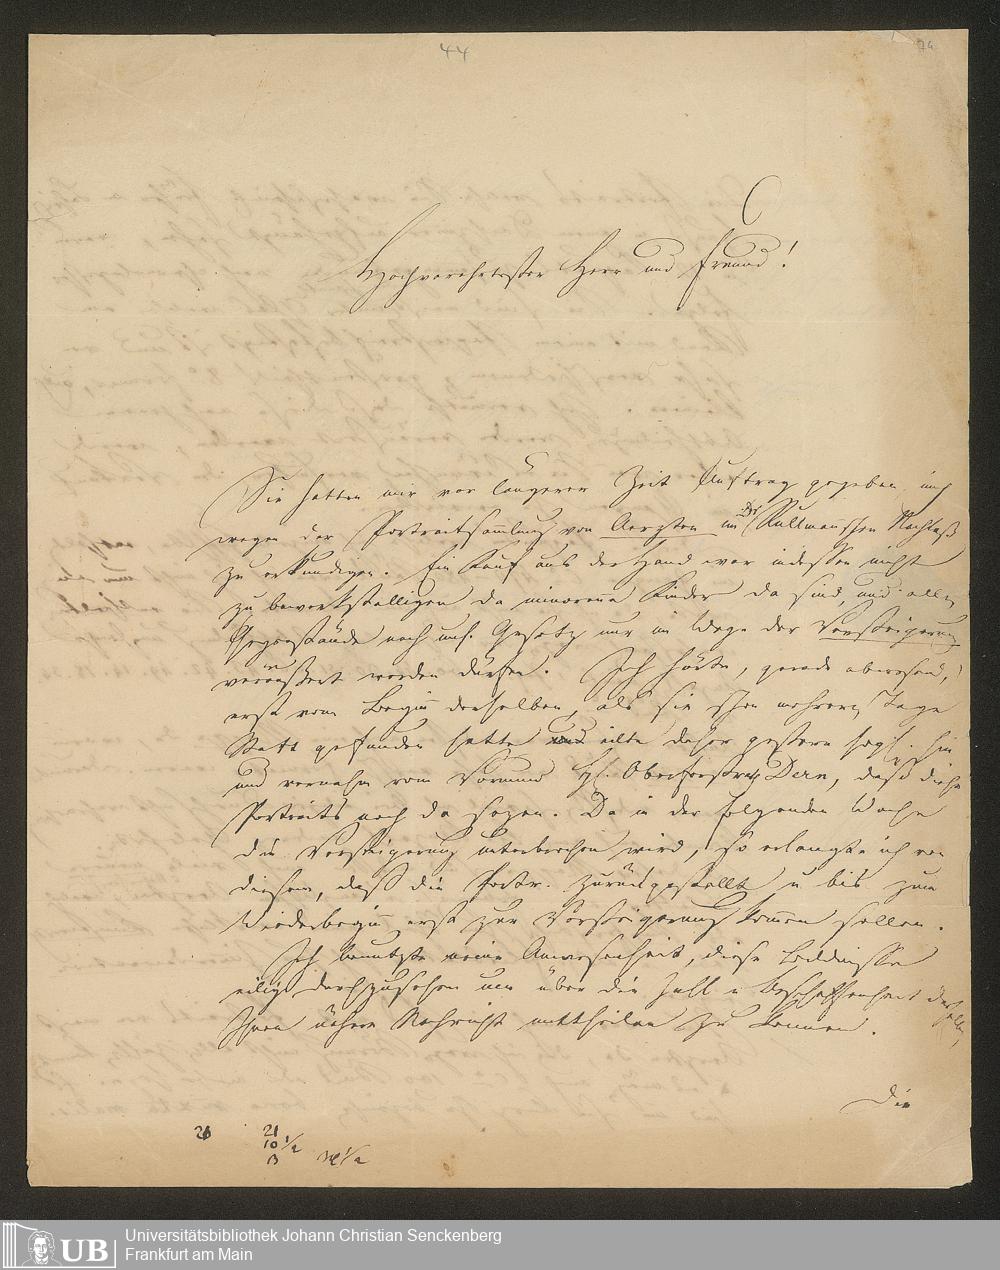 44
74
Hochverehrtester Herr und Freund!
Sie hatten mir vor längerer Zeit Auftrag gegeben, mich
wegen der Portraitsammlung von Aerzten im Dr Kullmanschen Nachlaß
zu erkundigen. Ein Kauf aus der Hand war indessen nicht
zu bewerkstelligen da minorenne Kinder da sind, und alle
Gegenstände nach uns. Gesetz nur im Wege der Versteigerung
veräußert werden dürfen. Ich hörte, gerade abwesend,
erst vom Beginn derselben, als sie schon mehrere Tage
Statt gefunden hatte und eilte daher gestern sogl. hin
und vernahm vom Vormund H. Oberforstrath Dern, daß diese
Portraits noch da seyen. Da in der folgenden Woche
die Versteigerung unterbrochen wird, so erlangte ich von
diesem, daß die Portr. zurückgestellt u bis zum
Wiederbeginn erst zur Versteigerung kommen sollen.
Ich benutzte meine Anwesenheit, diese Bildnisse
eilig durchzusehen um über die Zahl u Beschaffenheit derselben,
Ihnen nähere Nachricht mittheilen zu können.
Die
21
10 1/2
3
1/2
UB
Universitätsbibliothek Johann Christian Senckenberg
Frankfurt am Main